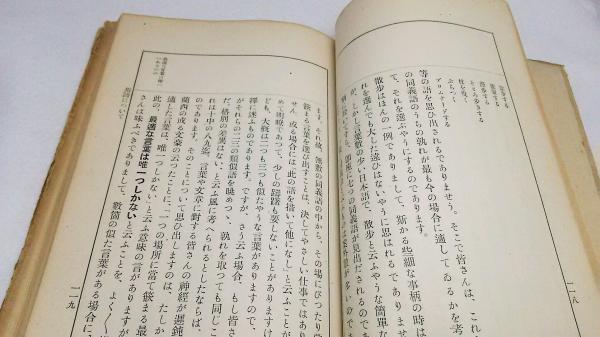 散歩する
散策する
漫歩する
そゞろ歩きする
杖を曳く
ぶらつく
プロムナードする
等の語を思ひ出されるでありませう。そこで皆さんは、これ
の同義語のうちの孰れが最も今の場合に適してゐるかを考
て、それを選ぶやうにするのであります。
散歩はほんの一例でありまして、斯かる些細な事柄の時は
れを選んでも大した違ひはないやうに思はれるでありませ
が、しかし言葉数の少い日本語で、散歩と云ふやうな簡単な
二八
ます。それ故、無数の同義語の中から、その場にぴったり当
嵌まる言葉を選び出すことは、決してやさしい仕事ではあり
せん。或る場合には「此の語を措いて他になし」と云ふことが
めて明瞭であつて、少しの躊躇も要しないことがありますけ
ども、大概は二つも三つも似たやうな言葉がありますので、
択に迷ふものであります。ですが、さう云ふ場合、もし皆さ
がそれらの二三の類似語を眺めつゝ、孰れを取つても同じこ
だ、格別の差異はない」と云ふ風に考へられるとしたならば、
れは十中の八九迄、言葉や文章に対する皆さんの神経が遅鈍
のであります。そのことについて思ひ出しますのは、たしか
蘭西の或る文豪の云つたことに、「一つの場所に当て嵌まる最
適した言葉は、唯一つしかない」と云ふ意味の言がありますが
此の、最適な言葉は唯一つしかないと云ふことを、よく〳〵
さんは味ふべきでありまして、数箇の似た言葉がある場合に、
二九